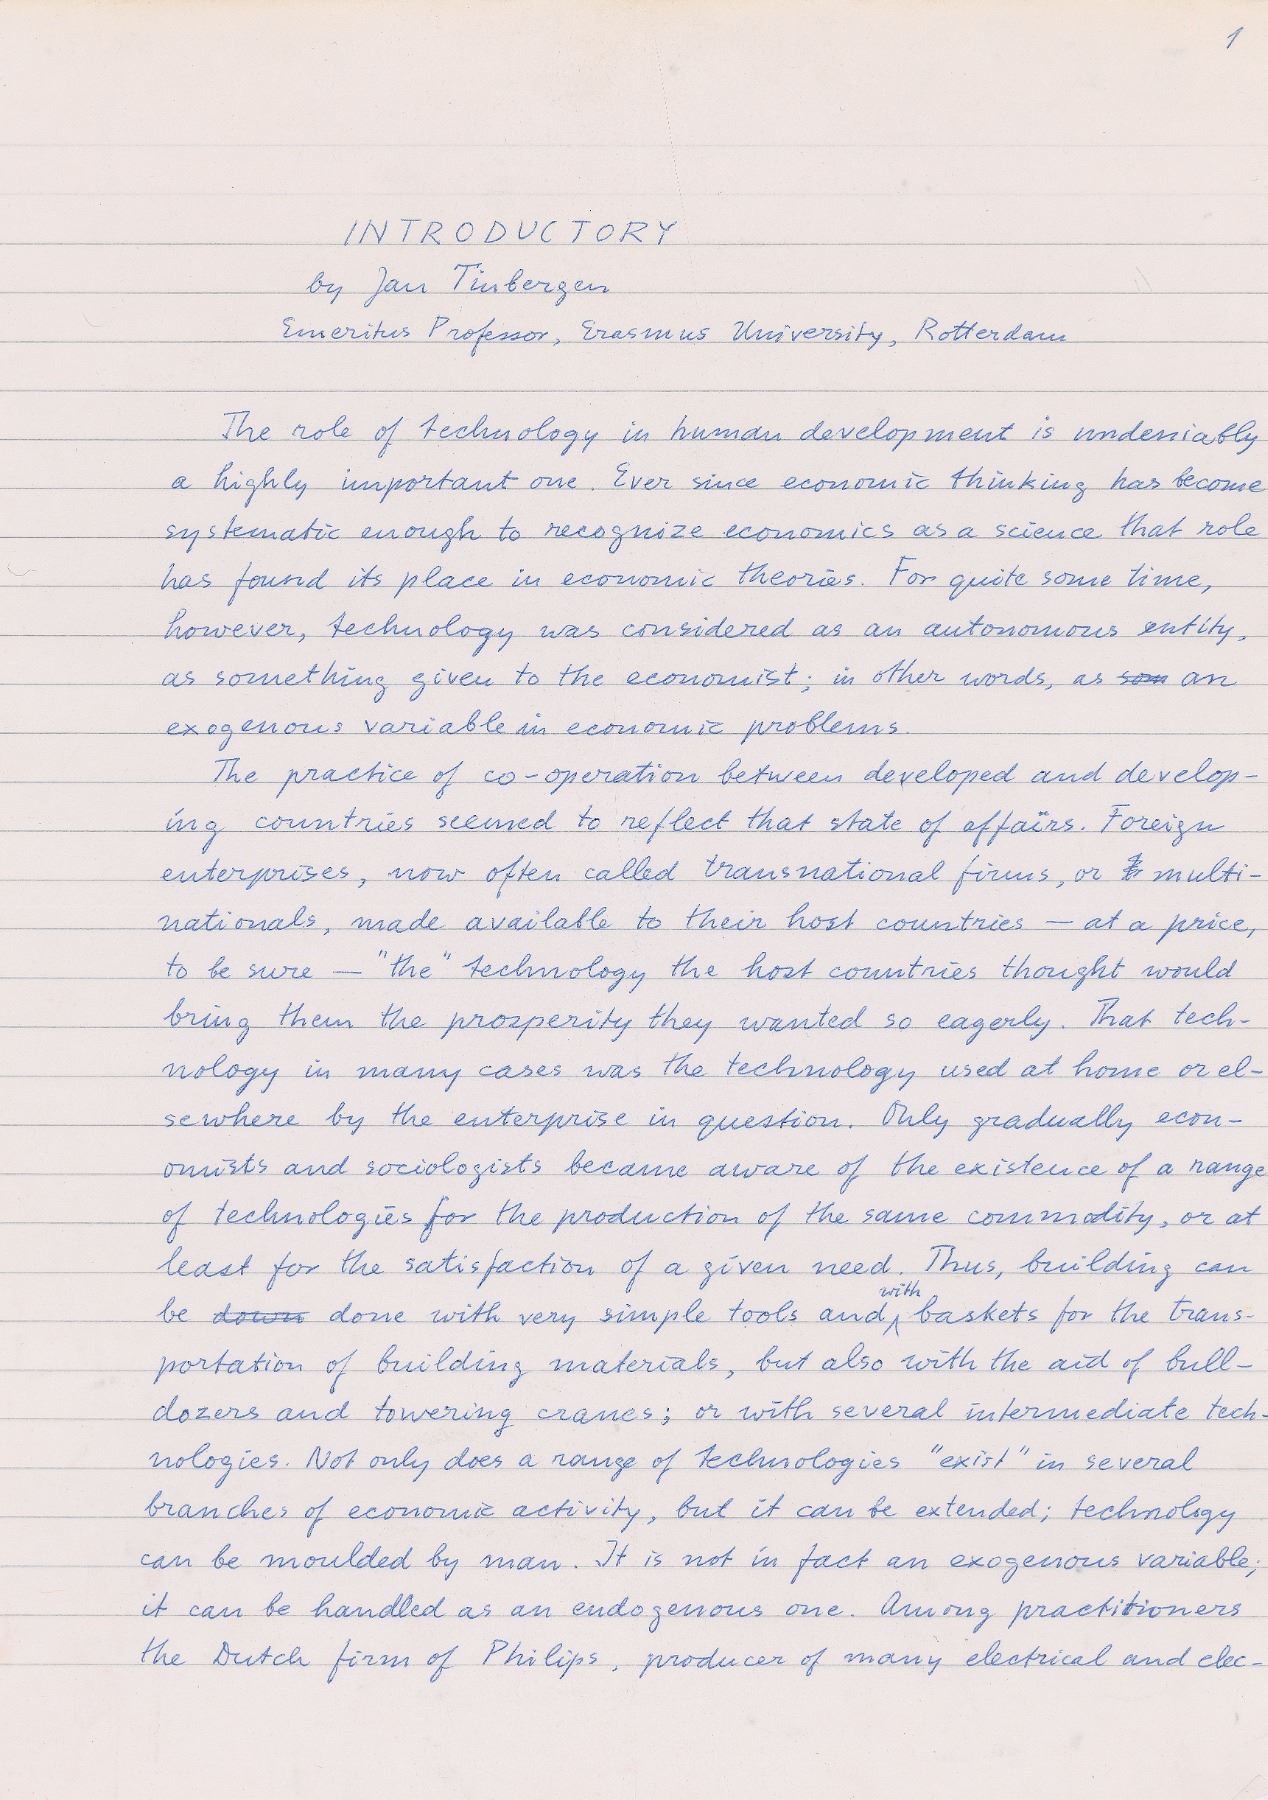 1
INTRODUCTORY
by Jan Tinbergen
Emeritus Professor, Erasmus University, Rotterdam
The role of technology in human development is undeniably
a highly important one. Ever since economic thinking has become
systematic enough to recognize economics as a science that role
has found its place in economic theories. For quite some time,
however, technology was considered as an autonomous entity,
as something given to the economist; in other words, as som an
exogenous variable in economic problems.
The practice of co-operation between developed and develop-
ing countries seemed to reflect that state of affairs. Foreign
enterprises, now often called transnational firms, or multi-
nationals, made available to their host countries — at a price,
to be sure — "the" technology the host countries thought would
bring them the prosperity they wanted so eagerly. That tech-
nology in many cases was the technology used at home or el-
sewhere by the enterprise in question. Only gradually econ-
omists and sociologists became aware of the existence of a range
of technologies for the production of the same commodity, or at
least for the satisfaction of a given need. Thus, building can
be down done with very simple tools and with baskets for the trans-
portation of building materials, but also with the aid of bull-
dozers and towering cranes; or with several intermediate tech-
nologies. Not only does a range of technologies "exist" in several
branches of economic activity, but it can be extended; technology
can be moulded by man. It is not in fact an exogenous variable;
it can be handled as an endogenous one. Among practitioners
the Dutch firm of Philips, producer of many electrical and elec-